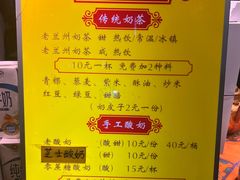 传统奶茶
老兰州奶茶 甜 热饮/常温/冰镇
老兰州奶茶 咸 热饮
10元一杯 免费加2种料
青稞、葡干、紫米、酥油、炒米
红豆、绿豆、甜醅
(奶皮子2元一份)
手工酸奶
老酸奶 (酸甜) 10元/份 40元/桶
芝士酸奶 (甜) 10元/份
零蔗糖酸奶 (酸) 15元/杯